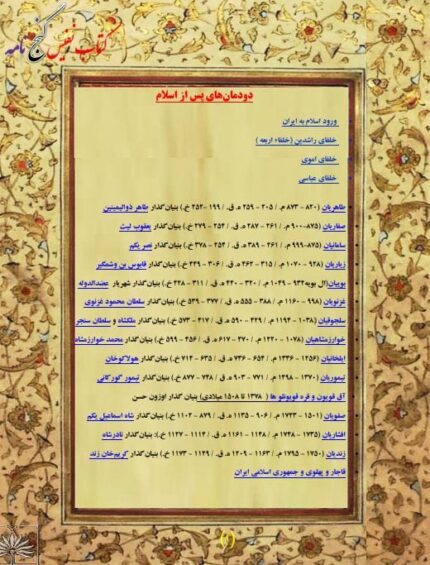 کتاب نفیس گنج نامه
دودمان‌های پس از اسلام
ورود اسلام به ایران
خلفای راشدین (خلفاء اربعه )
خلفای اموی
خلفای عباسی
طاهریان (۸۲۰ – ۸۷۳ م. / ۲۰۵ - ۲۵۹ ه. ق. / ۱۹۹ -۲۵۲ خ.) بنیان‌گذار طاهر ذوالیمینین
صفاریان (۸۷۵-۹۰۰ م. / ۲۶۱ - ۲۸۷ ه. ق. / ۲۵۴ - ۲۷۹ خ.) بنیان‌گذار یعقوب لیث
سامانیان (۸۷۵-۹۹۹ م. / ۲۶۱ - ۳۸۹ ه. ق. / ۲۵۴ - ۳۷۸ خ.) بنیان‌گذار نصر یکم
زیاریان (۹۲۸ - ۱۰۷۰ م. / ۳۱۵ - ۴۶۲ ه. ق. / ۳۰۶ - ۴۴۹ خ.) بنیان‌گذار قابوس بن وشمگیر
بوییان(آل بویه۹۳۲ - ۱۰۴۹ م. / ۳۲۰ - ۴۴۰ ه. ق. / ۳۱۱ - ۴۲۸ خ.) بنیان‌گذار شهریار عضدالدوله
غزنویان (۹۹۸ - ۱۱۶۰ م. / ۳۸۸ - ۵۵۵ ه. ق. / ۳۷۷ - ۵۳۹ خ.) بنیان‌گذار سلطان محمود غزنوی
سلجوقیان (۱۰۳۸ - ۱۱۹۴ م. / ۴۲۹ - ۵۹۰ ه. ق. / ۴۱۷ - ۵۷۳ خ.) بنیان‌گذار ملکشاه و سلطان سنجر
خوارزمشاهیان (۱۰۷۸ - ۱۲۲۰ م. / ۴۷۰ - ۶۱۷ ه. ق. / ۴۵۶ - ۵۹۹ خ.) بنیان‌گذار محمد خوارزمشاه
ایلخانیان (۱۲۵۶ - ۱۳۳۶ م. / ۶۵۴ - ۷۳۶ ه. ق. / ۶۳۵ - ۷۱۴ خ.) بنیان‌گذار هولاکوخان
تیموریان (۱۳۷۰ - ۱۴۹۸ م. / ۷۷۱ - ۹۰۳ ه. ق. / ۷۴۸ - ۸۷۷ خ.) بنیان‌گذار تیمور گورکانی
آق قویون و قره قویونلو ها ( ۱۳۷۸ تا ۱۵۰۸ میلادی) بنیان گذار اوزون حسن
صفویان (۱۵۰۱ - ۱۷۲۳ م. / ۹۰۶ - ۱۱۳۵ ه. ق. / ۸۷۹ - ۱۱۰۲ خ.) بنیان‌گذار شاه اسماعیل یکم
افشاریان (۱۷۳۵ - ۱۷۴۸ م. / ۱۱۴۸ - ۱۱۶۱ ه. ق. / ۱۱۱۴ - ۱۱۲۷ خ.): بنیان‌گذار نادرشاه
زندیان (۱۷۵۰ - ۱۷۹۵ م. / ۱۱۶۳ - ۱۲۰۹ ه. ق. / ۱۱۲۹ - ۱۱۷۳ خ.) بنیان‌گذار کریم‌خان زند
قاجار و پهلوی و جمهوری اسلامی ایران